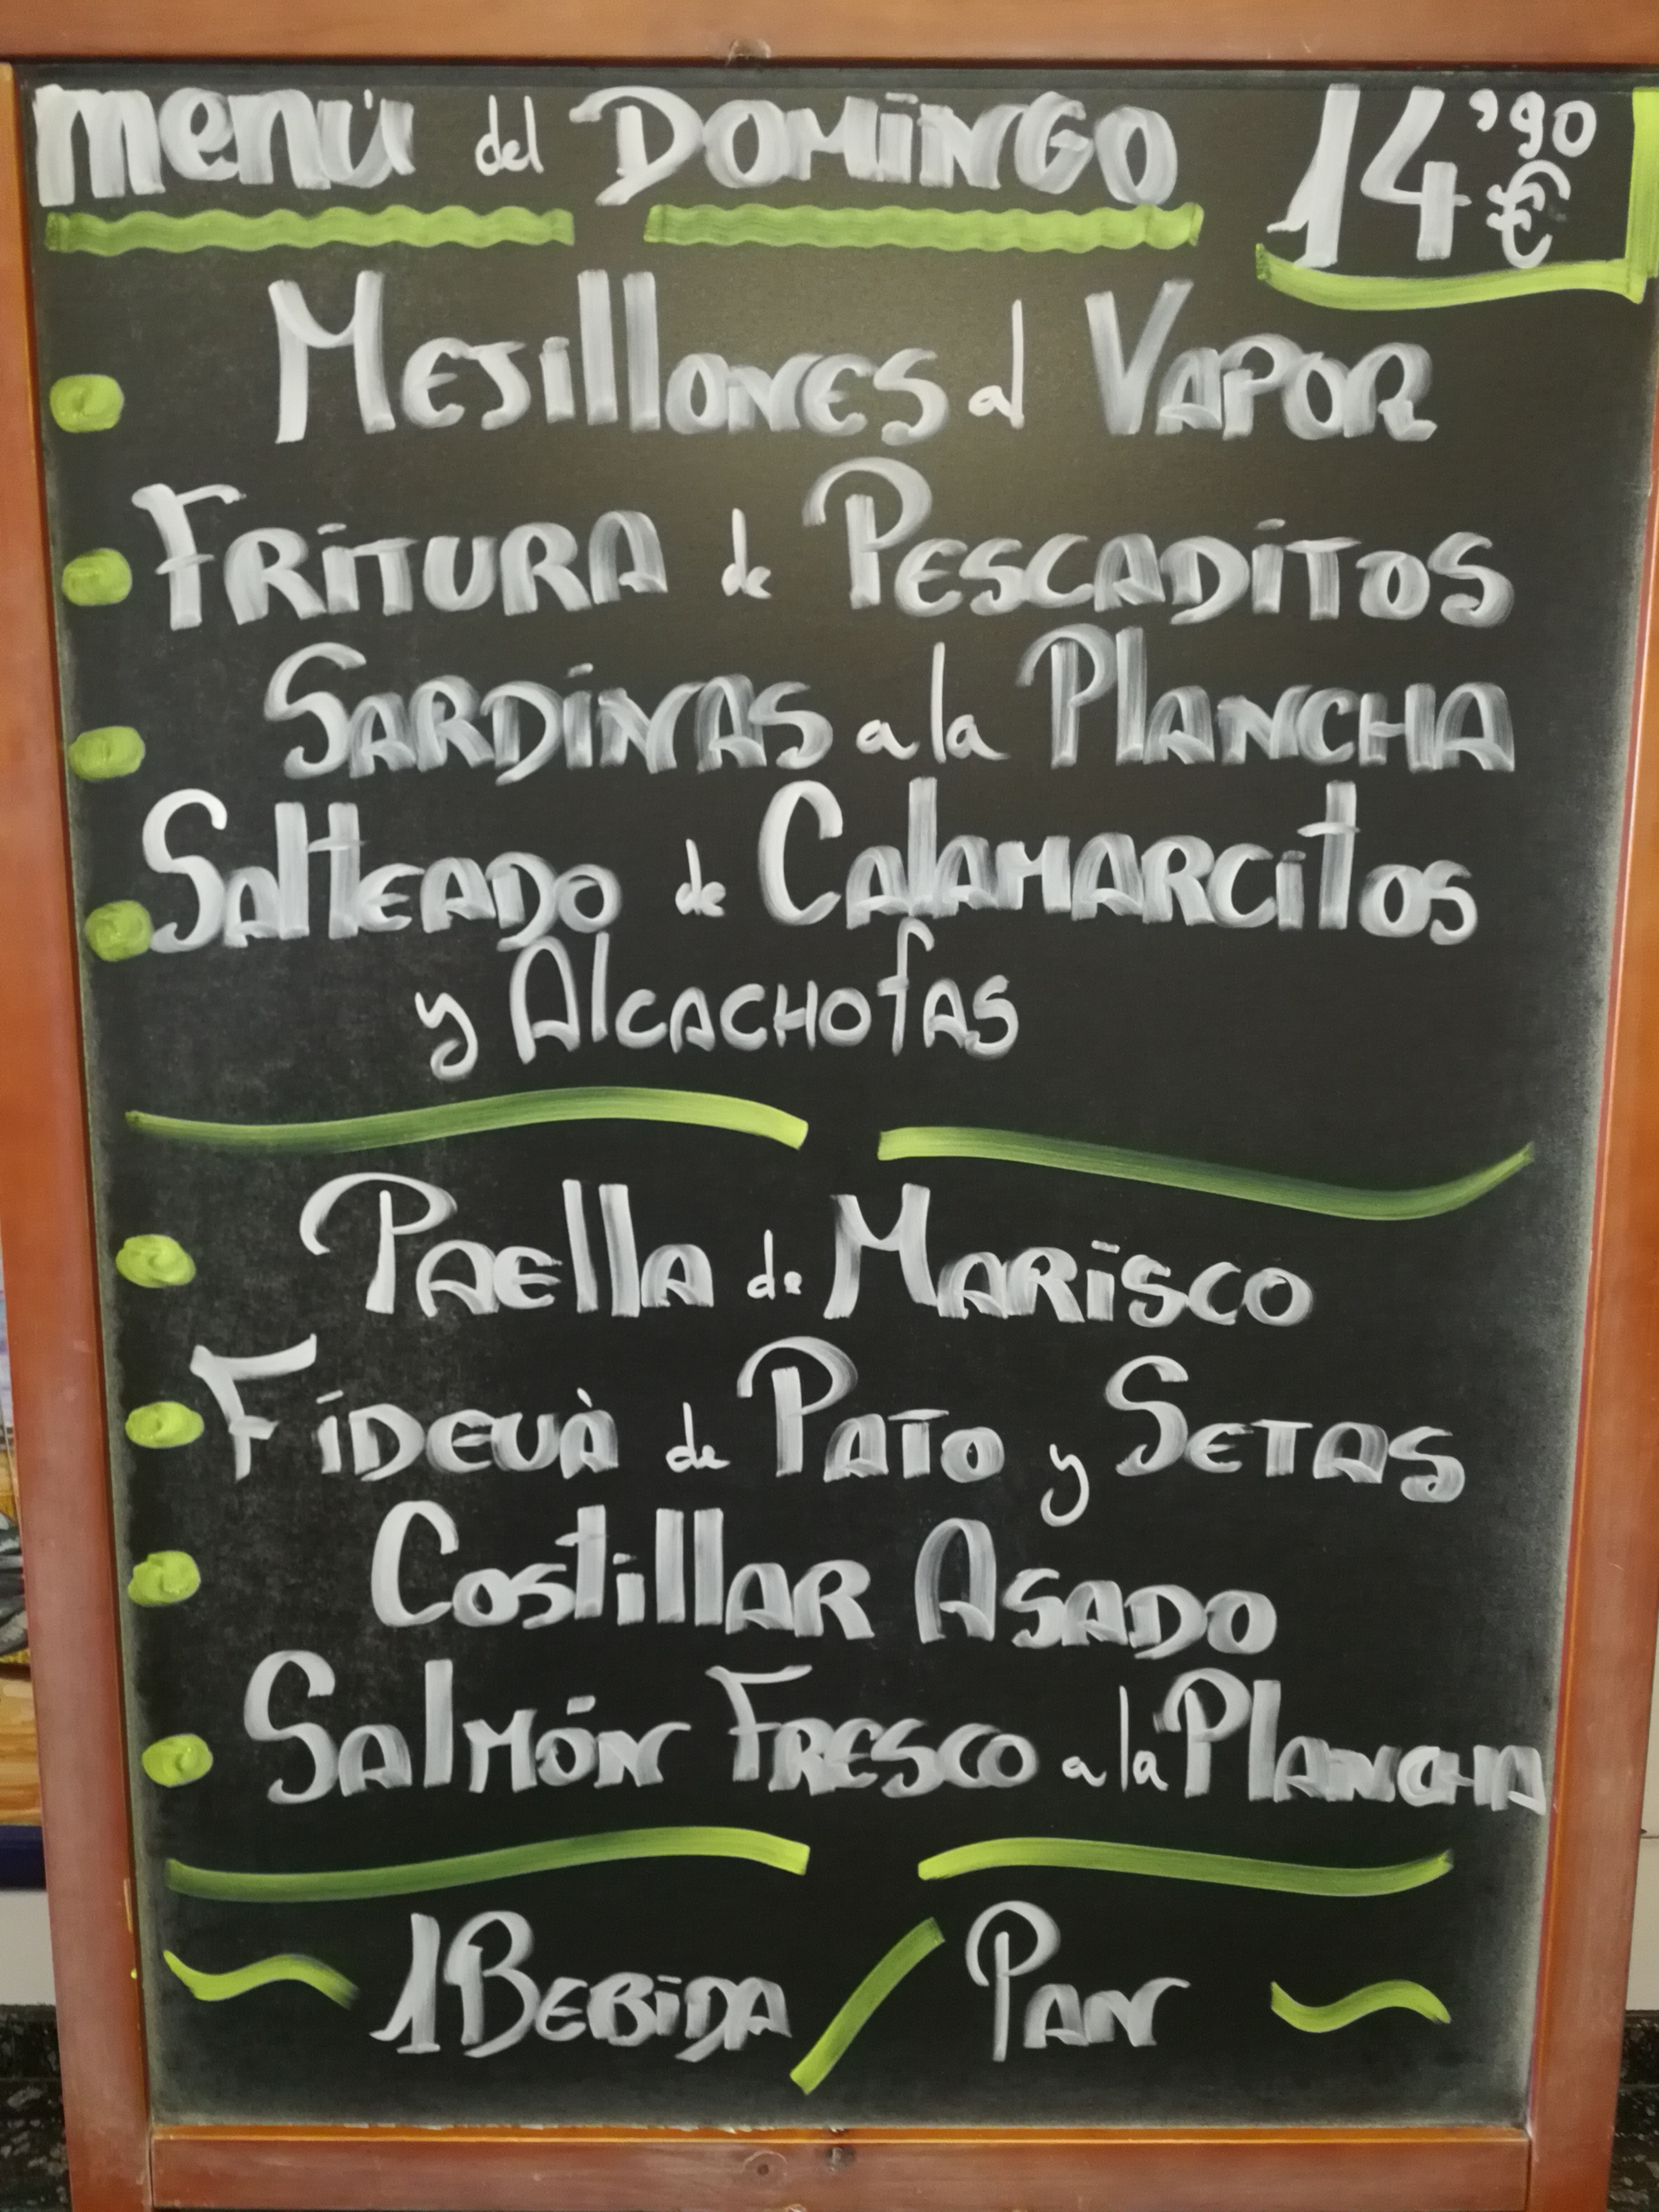 menú del DOMINGO 14'90 €
MEJillONES al VAPOR
FRITURA de PESCADITOS
SARDINAS a la PlANCHA
SAlTEADO de CAlAMARCitOS
y AlCACHOfAS
PAEllA de MARISCO
FIDEUÀ de PATO y SETAS
COStillAR ASADO
SAlMÓN FRESCO a la PlANCHA
1 BEBIDA / PAN